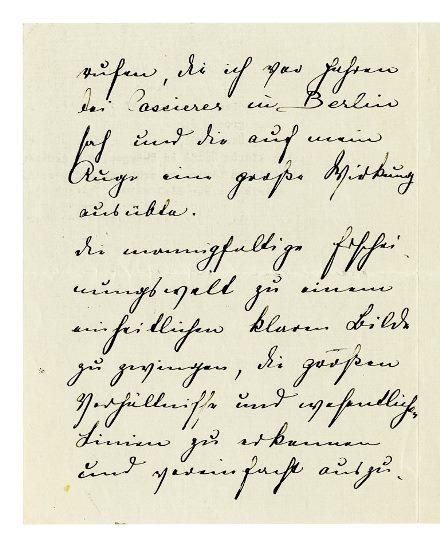 rufen, die ich vor Jahren
bei Cassierer in Berlin
sah und die auf mein
Auge eine große Wirkung
ausübte.
die mannigfaltige Erschei-
nungswelt zu einem
einheitlichen klaren Bilde
zu zwingen, die größten
Verhältnisse und wesentlichen
Linien zu erkennen
und vereinfacht auszu-